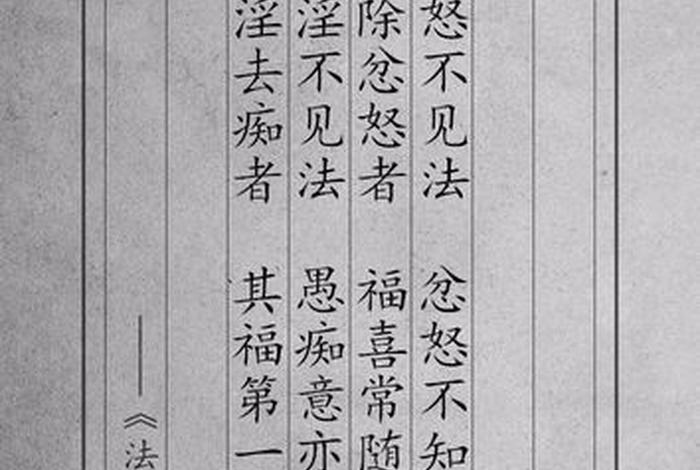 怒不见法 忿怒不知
除忿怒者 福喜常随
淫不见法 愚痴意亦
淫去痴者 其福第一
——《法